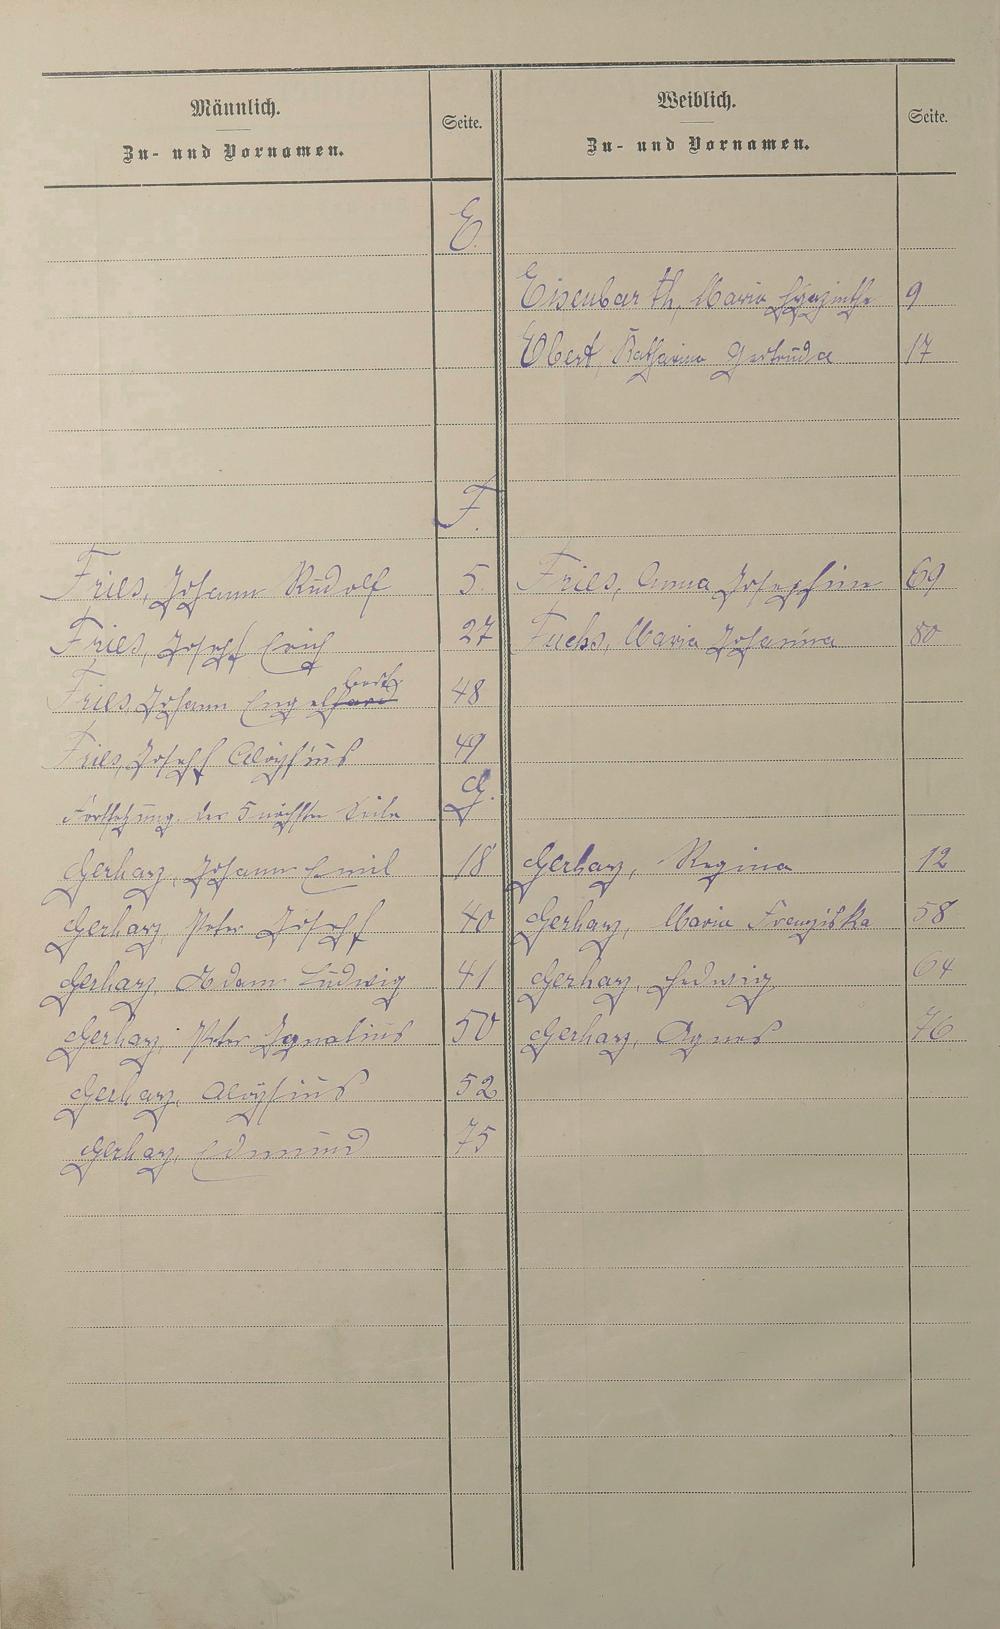 Männlich.
Zu- und Vornamen.
Seite.
Weiblich.
Zu- und Vornamen.
Seite.
E.
Eisenbarth, Maria Hyazinthe 9
Ebert, Katharina Gertruda 17
F.
Fries, Johann Rudolf 5. Fries, Anna Josephine 69
Fries, Joseph Erich 27 Fuchs, Maria Johanna 80
bert
Fries Johann Engelhard 48
Fries, Joseph Aloysius 49
G.
Fortsetzung der 5 nächste Seite
Gerharz, Johann Emil 18 Gerharz, Regina 12
Gerharz, Peter Joseph 40 Gerharz, Maria Franziska 58
Gerharz, Adam Ludwig 41 Gerharz, Hedwig 64
Gerharz, Peter Ignatius 50 Gerharz, Agnes 76
Gerharz, Aloysius 52
Gerharz, Edmund 75